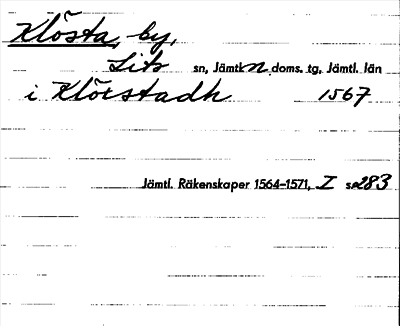 Klösta, by,
Lits sn, Jämtl. n. doms. tg, Jämtl. län
i Klörstadh 1567
Jämtl. Räkenskaper 1564–1571, I s. 283